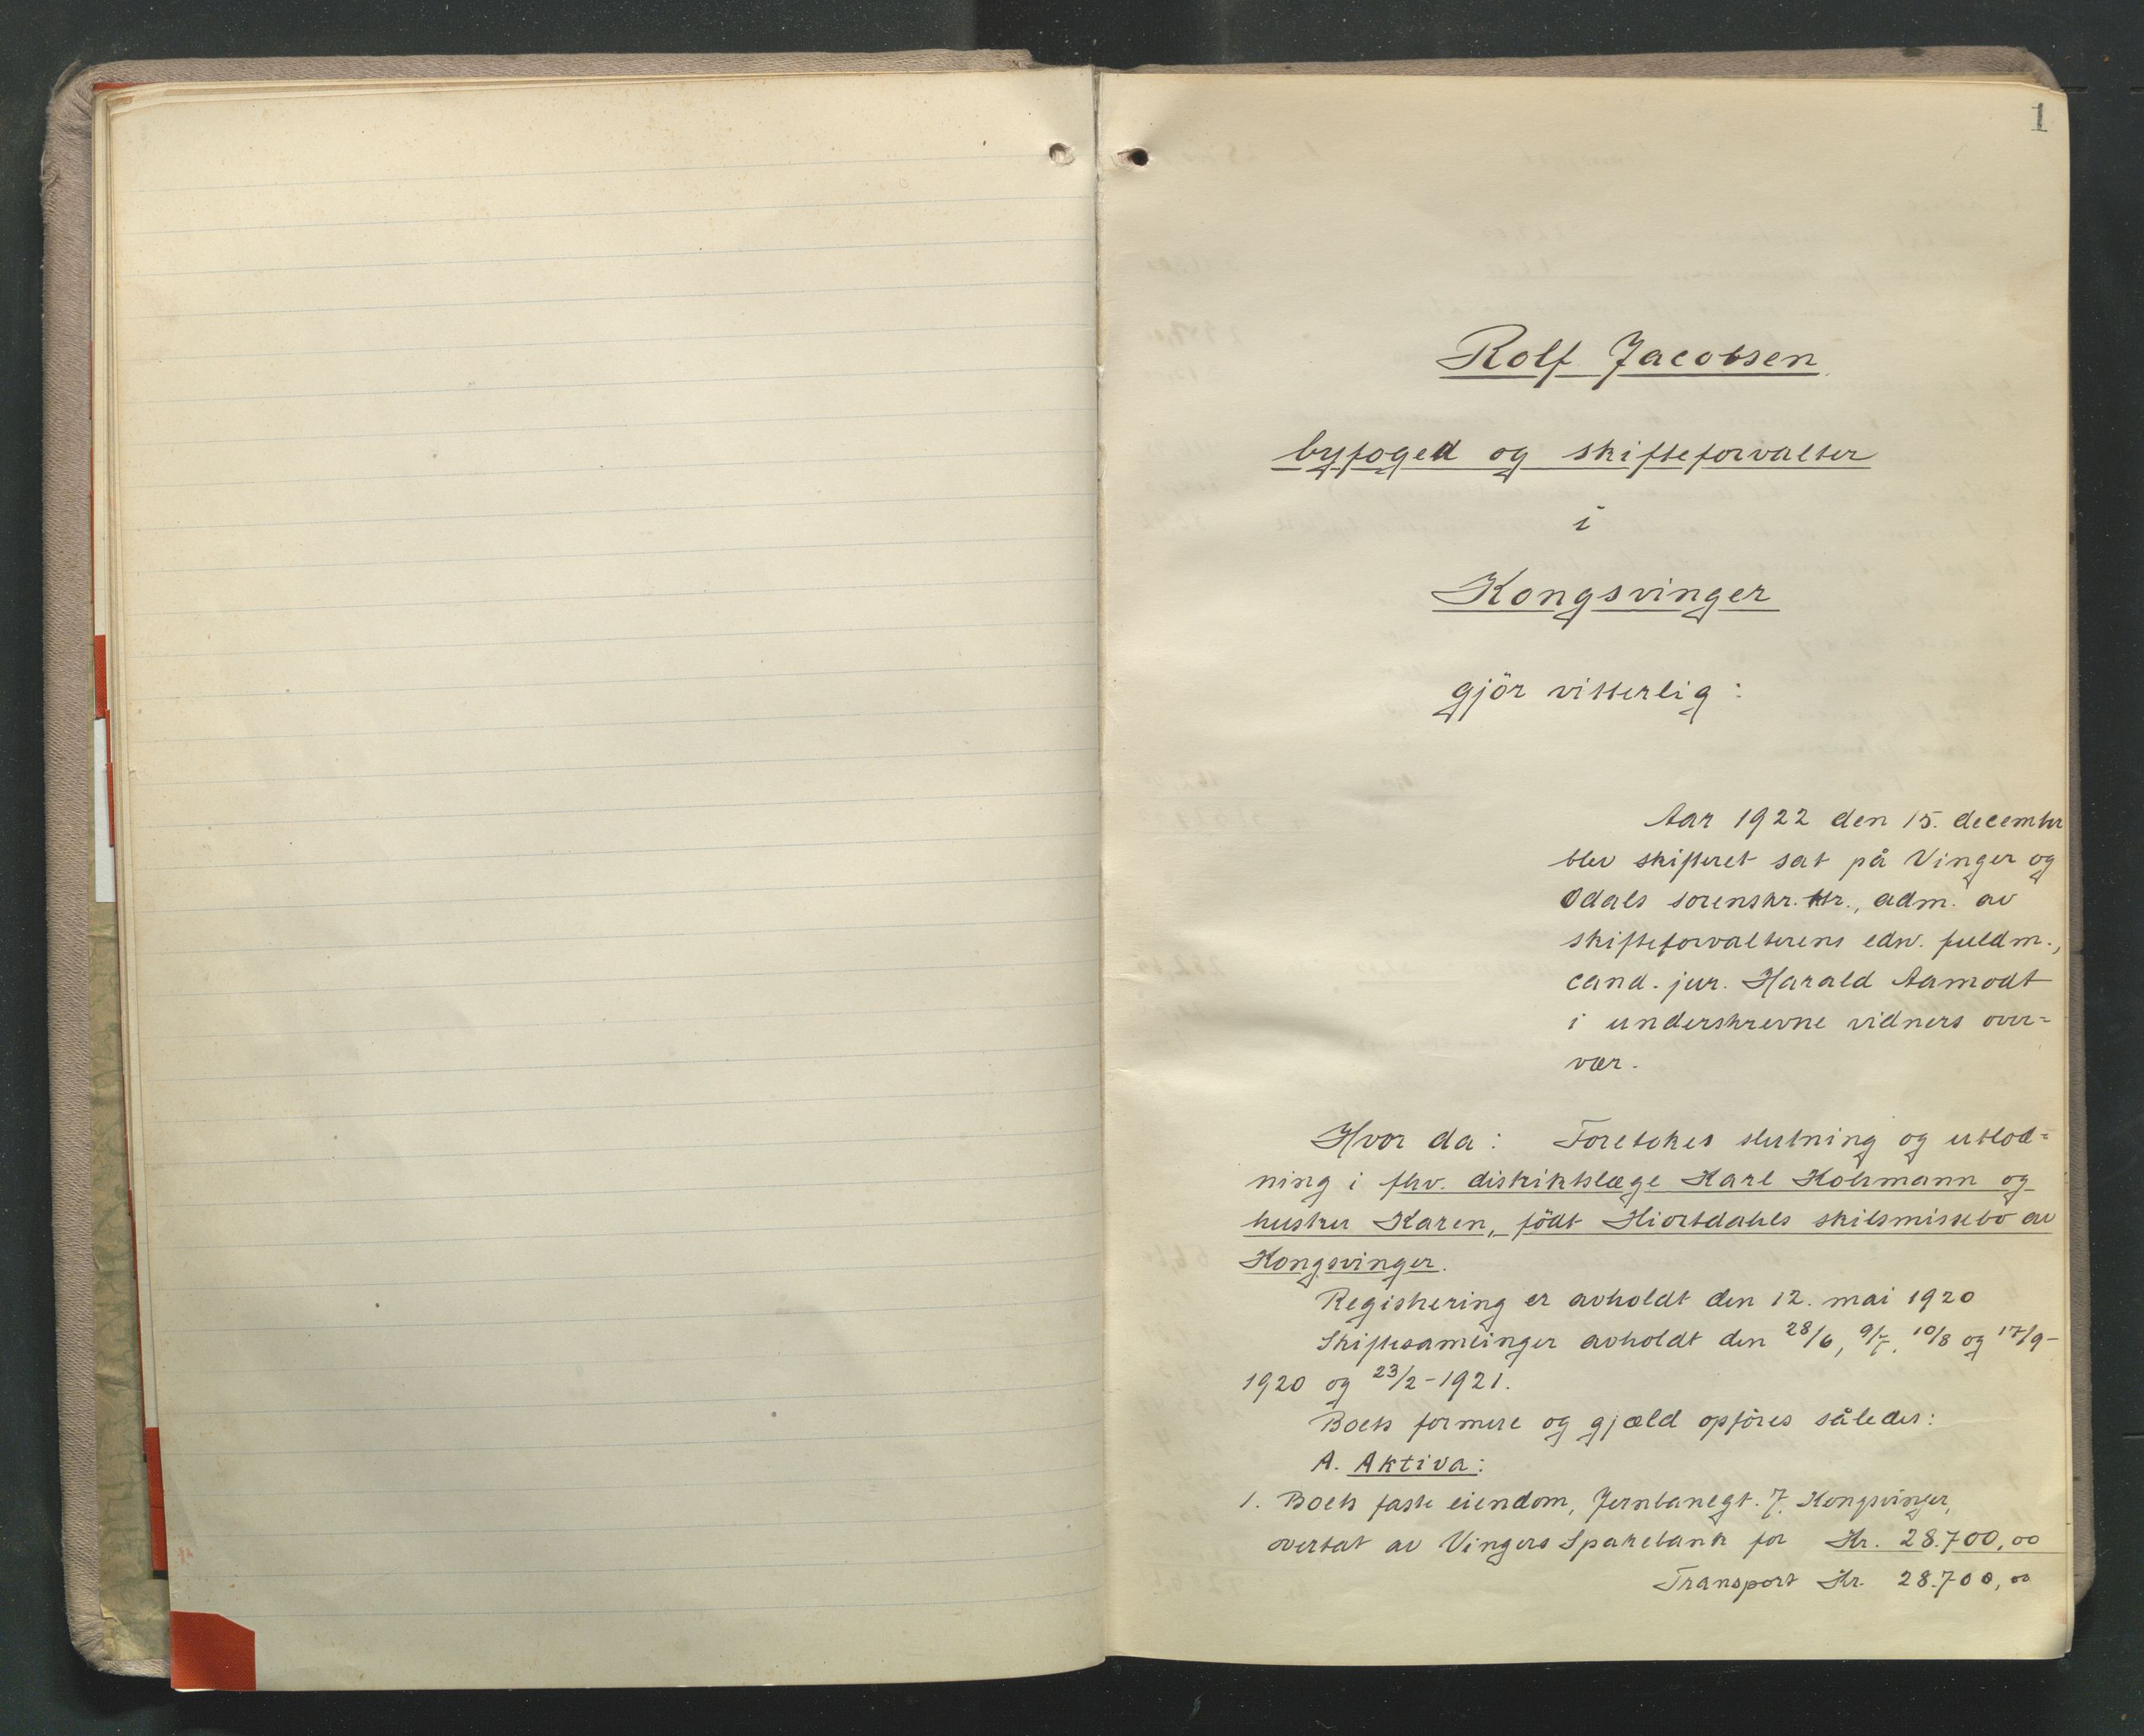 1
Rolf Jacobsen
byfoged og skifteforvalter
i
Kongsvinger
gjör vitterlig:
Aar 1922 den 15. decembr
blev skifteret sat på Vinger og
Odals sorenskr. ktr., adm. av
skifteforvalterens edsv. fuldm.,
cand. jur. Harald Aamodt
i underskrevne vidners over=
vær.
Hvor da: Foretokes slutning og utlod=
ning i fhv. distriktslæge Karl Kohmann og
hustru Karen, födt Hiortdahls skilsmissebo av
Kongsvinger.
Registrering er avholdt den 12. mai 1920
Skiftesamlinger avholdt den 28/6, 9/7, 10/8 og 17/9-
1920 og 23/2-1921.
Boets formue og gjæld opföres således:
A. Aktiva:
1. Boets faste eiendom, Jernbanegt. 7, Kongsvinger,
overtat av Vingers Sparebank for Kr. 28.700,00
Transport Kr. 28.700,00